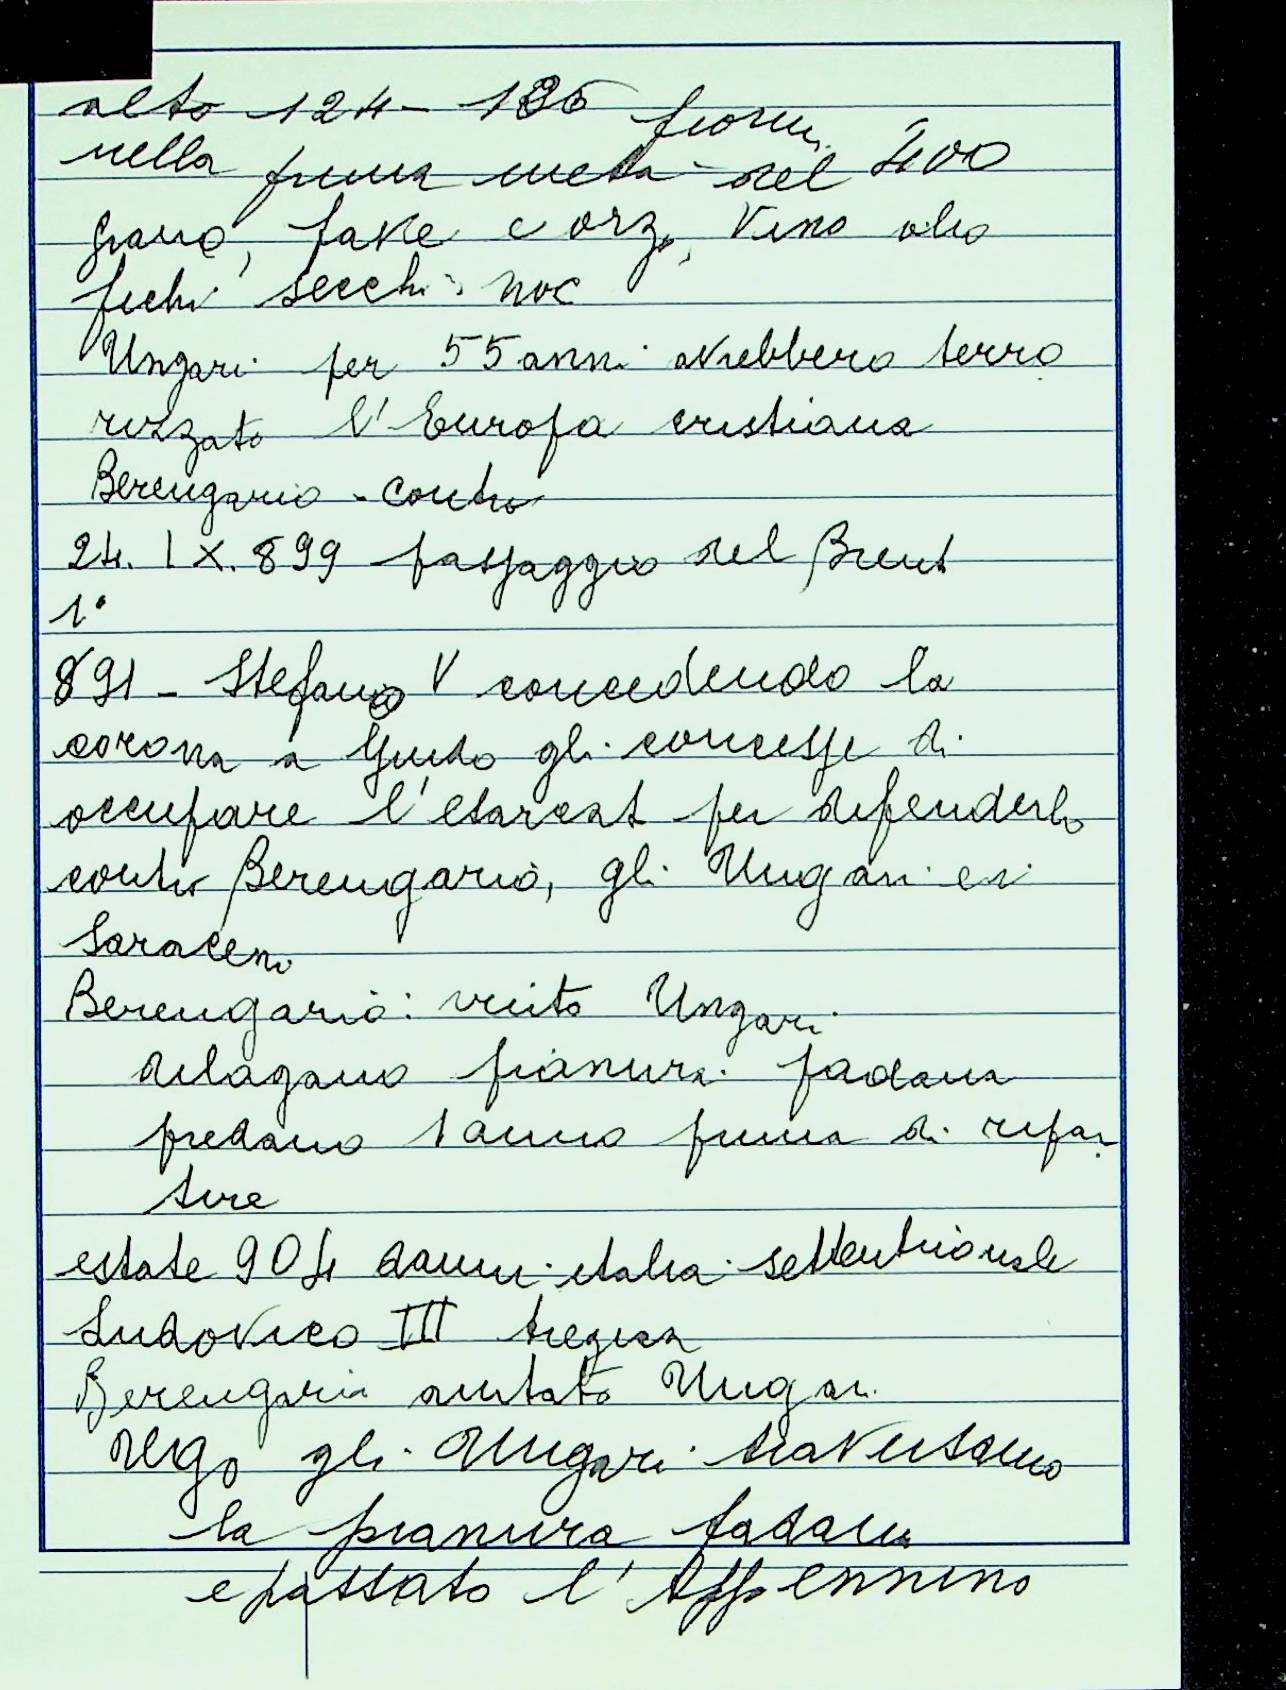 alto 124 - 186 fiorini
nella prima metà del 400
grano, fave e orzo, vino olio
fichi secchi noc
Ungari per 55 anni avrebbero terro
rizzato l'Europa cristiana
Berengario - contro
24. IX. 899 passaggio del Brent
1°
891 - Stefano V concedendo la
corona a Guido gli concesse di
occupare l'esarcat per difenderlo
contro Berengario, gli Ungari e i
Saraceni
Berengario: vinto Ungari
dilagano pianura padana
predano 1 anno prima di ripar
tire
estate 904 danni italia settentrionale
Ludovico III tregua
Berengario aiutato Ungari
Ugo gli Ungari traversano
la pianura padana
e passato l'Appennino